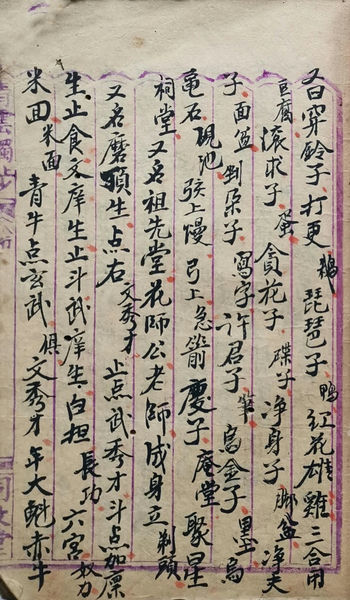 又曰穿幹子打更鵝琵琶子鴨红花雄雞三合用
豆腐滚求子蛋貪花子碟子净身子脚盆净夫
子面盆剉朶子寫字許君子筆烏金子墨烏
亀石硯池弦上慢弓上急箭慶子庵堂聚星
祠堂又名祖先堂花師公老師成身立剃頭
又名磨頭生点右文秀才止点武秀才斗点加廪
生止食文庠生止斗武庠生白担長功六宫奴力
米面米面青牛点玄武俱文秀才年大魁赤牛